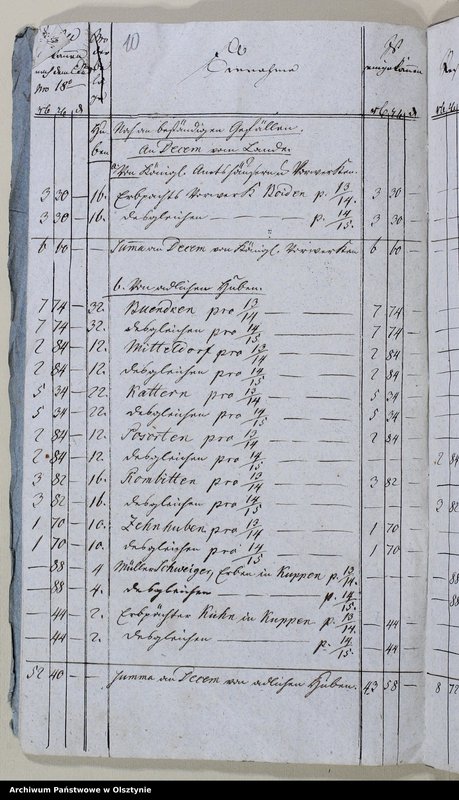 10
Einnahme
nach dem Etat
pro 18
einge kommen
rb. gr. d.
Huben
rb. gr. d.
Noch an beständigen Gefällen.
An Decem vom Lande.
a. Von Königl. Vorwerken.
3 30 — 16. Erbpachts Vorwerk Boiden p. 13/14. 3 30 —
3 30 — 16. desgleichen — — p. 14/15. 3 30 —
6 60 — Summa an Decem von Königl. Vorwerken 6 60
b. Von adlichen Huben.
7 74 — 32. Buendken pro 13/14 — — 7 74 —
7 74 — 32. desgleichen pro 14/15 — — 7 74 —
2 84 — 12. Mitteldorf pro 13/14 — — 2 84 —
2 84 — 12. desgleichen pro 14/15 — — 2 84 —
5 34 — 22. Kattern pro 13/14 — — 5 34 —
5 34 — 22. desgleichen pro 14/15 — — 5 34 —
2 84 — 12. Posorten pro 13/14 — — 2 84 —
2 84 — 12. desgleichen pro 14/15 — — 2 84
3 82 — 16. Rombitten pro 13/14 — — 3 82 —
3 82 — 16. desgleichen pro 14/15 — — 3 82
1 70 — 10. Zehnhuben pro 13/14 — — 1 70 —
1 70 — 10. desgleichen pro 14/15 — — 1 70 —
— 88 — 4 Müller Schweiger, Erben in Kuppen p. 13/14. 88
— 88 — 4. desgleichen p. 14/15. 88
— 44 — 2. Erbpächter Kuhn in Kuppen p. 13/14. — 44 —
— 44 — 2. desgleichen — p. 14/15. — 44 —
52 40 — Summa an Decem von adlichen Huben. 43 58 — 8 72
Archiwum Państwowe w Olsztynie